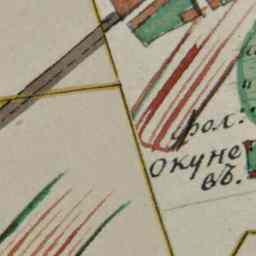 фол.
окуне
въ.